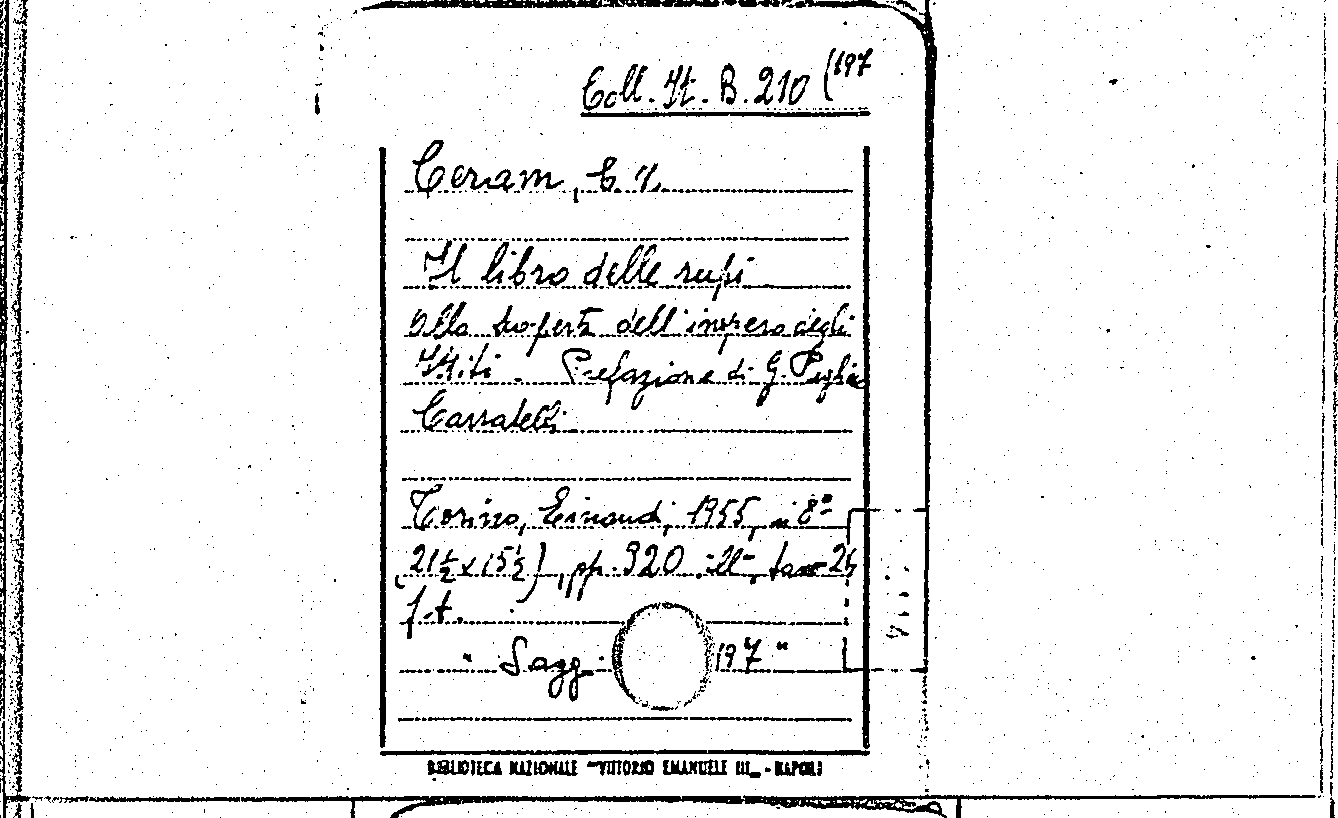 Coll. It. B. 210 (197
Ceram, C. W.
Il libro delle rupi
Alla scoperta dell'impero degli
Ittiti. Prefazione di G. Pugliese
Carratelli
Torino, Einaudi, 1955, in 8°
(21½ x 15½), pp. 320 ill., tav. 24
f.t.
"Saggi 197"
BIBLIOTECA NAZIONALE "VITTORIO EMANUELE III" - NAPOLI